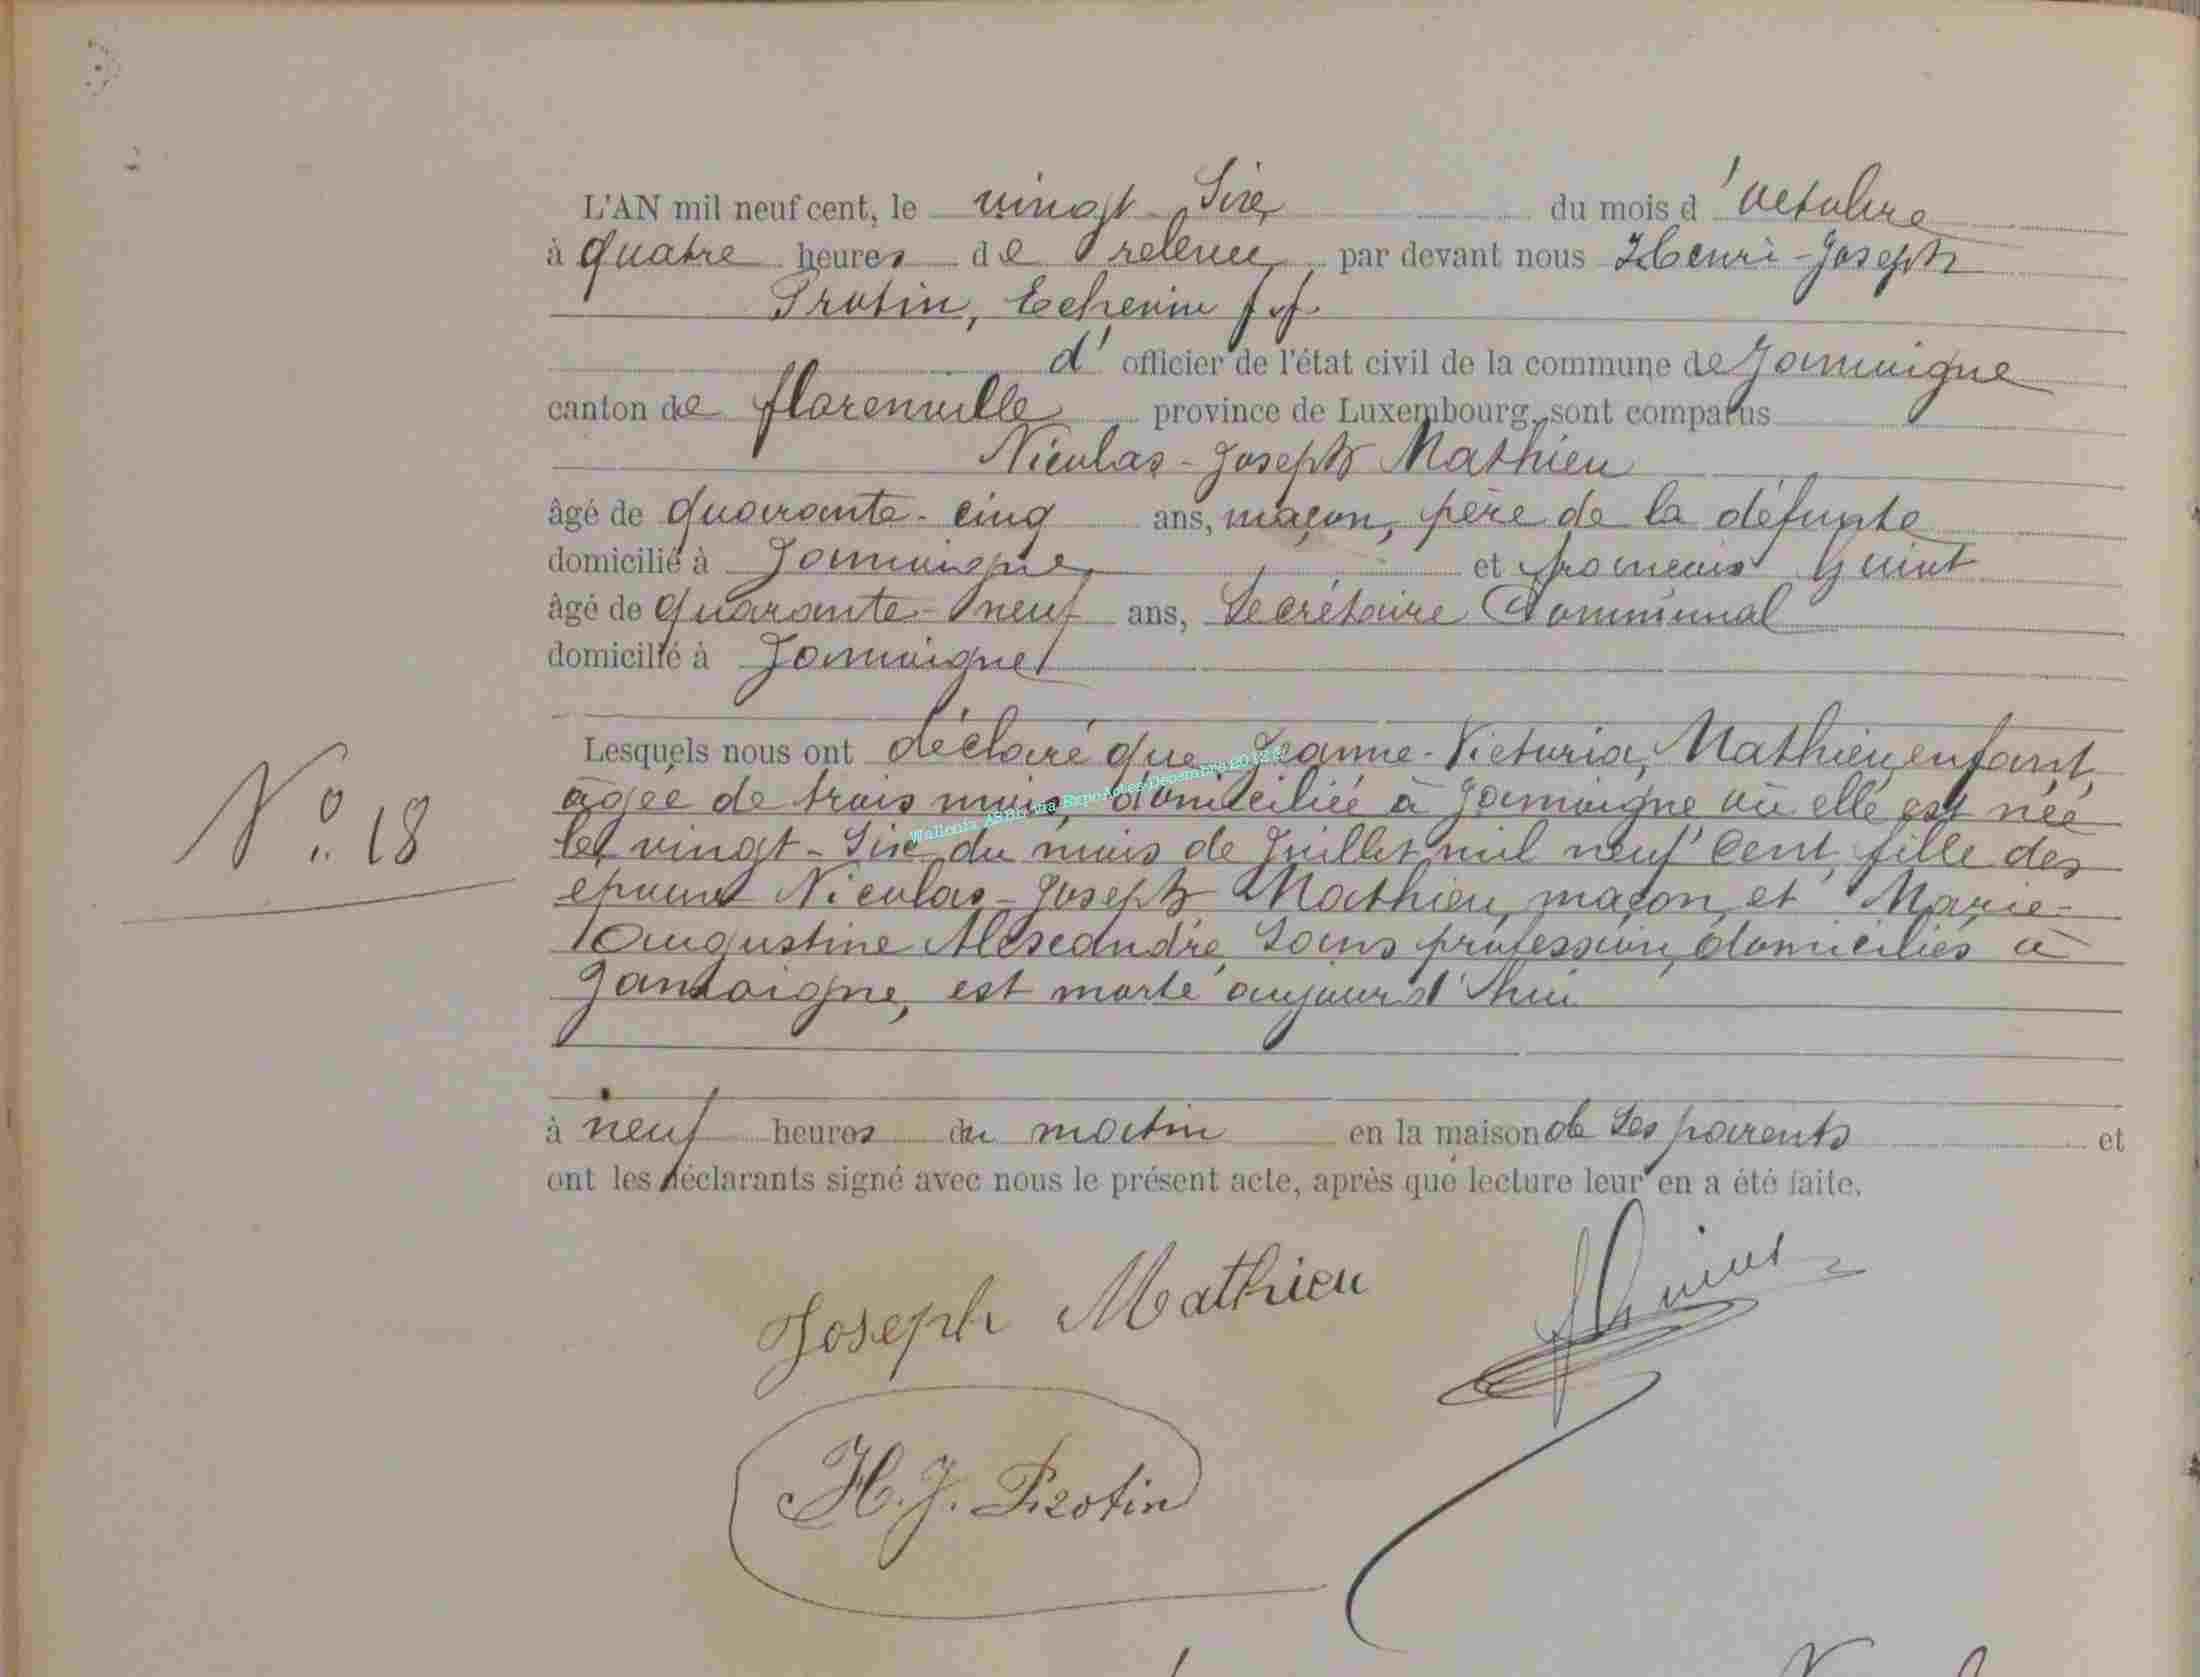 L'AN mil neuf cent, le vingt Six du mois d'Octobre
à quatre heures de relevée, par devant nous Henri-Joseph
Protin, Echevin f.f.
d' officier de l'état civil de la commune de Jamoigne
canton de florenville province de Luxembourg, sont comparus
Nicolas-Joseph Mathieu
âgé de quarante-cinq ans, maçon, père de la défunte
domicilié à Jamoigne, et francois Guiot
âgé de quarante-neuf ans, Secrétaire Communal
domicilié à Jamoigne
Lesquels nous ont déclaré que Jeanne-Victoria, Mathieu, enfant,
âgée de trois mois, domiciliée à Jamoigne où elle est née
le vingt-Six du mois de Juillet mil neuf Cent, fille des
époux Nicolas-Joseph Mathieu, maçon, et Marie-
Augustine Alexandre, Sans profession, domiciliés à
Jamoigne, est morte aujourd'hui
N° 18
à neuf heures du matin en la maison de Ses parents et
ont les déclarants signé avec nous le présent acte, après que lecture leur en a été faite.
Joseph Mathieu
H. J. Protin
Wallonia ASBL via ExpoActes Décembre 2012